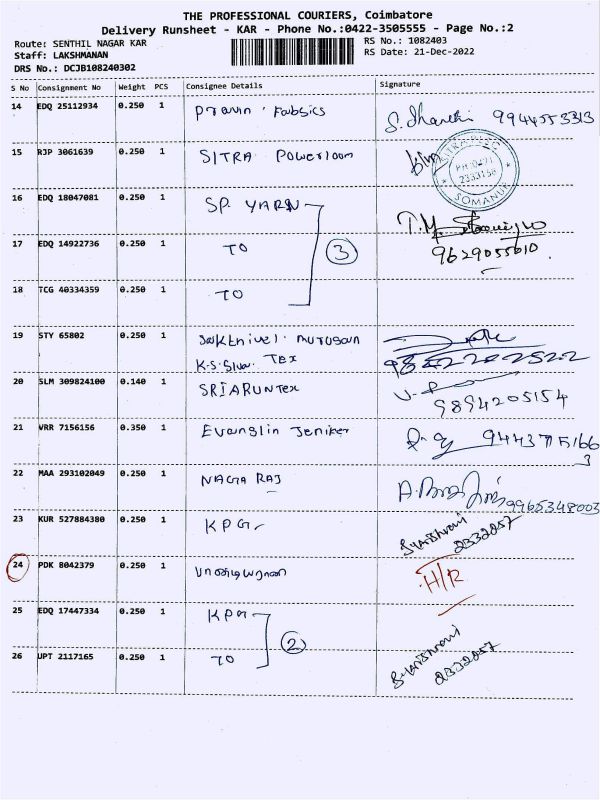 THE PROFESSIONAL COURIERS, Coimbatore
Delivery Runsheet - KAR - Phone No.:0422-3505555 - Page No.:2
Route: SENTHIL NAGAR KAR
RS No.: 1082403
Staff: LAKSHMANAN
RS Date: 21-Dec-2022
DRS No.: DCJB108240302
S No Consignment No Weight PCS Consignee Details Signature
14 EDQ 25112934 0.250 1 Pravin Fabsics 9944553313
15 RJP 3061639 0.250 1 SITRA Powerloom
SOMANUR
16 EDQ 18047081 0.250 1 SP. YARN
17 EDQ 14922736 0.250 1 TO 3 9629055610
18 TCG 40334359 0.250 1 TO
19 STY 65802 0.250 1 Sakthivel. Murugan
K.S. Siva. Tex
20 SLM 309824100 0.140 1 SRIARUNTEX 9894205154
21 VRR 7156156 0.350 1 Evanglin Jeniker
22 MAA 293102049 0.250 1 NAGA RAJ 9965348003
23 KUR 527884380 0.250 1 KPG 2332257
24 PDK 8042379 0.250 1 H/R
25 EDQ 17447334 0.250 1 KPG
26 UPT 2117165 0.250 1 TO 2 2332257